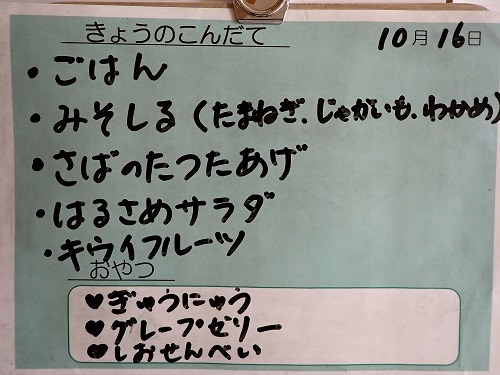 きょうのこんだて 10月16日
・ごはん
・みそしる(たまねぎ.じゃがいも.わかめ)
・さばのたつたあげ
・はるさめサラダ
・キウイフルーツ
おやつ
♥ぎゅうにゅう
♥グレープゼリー
♥しおせんべい